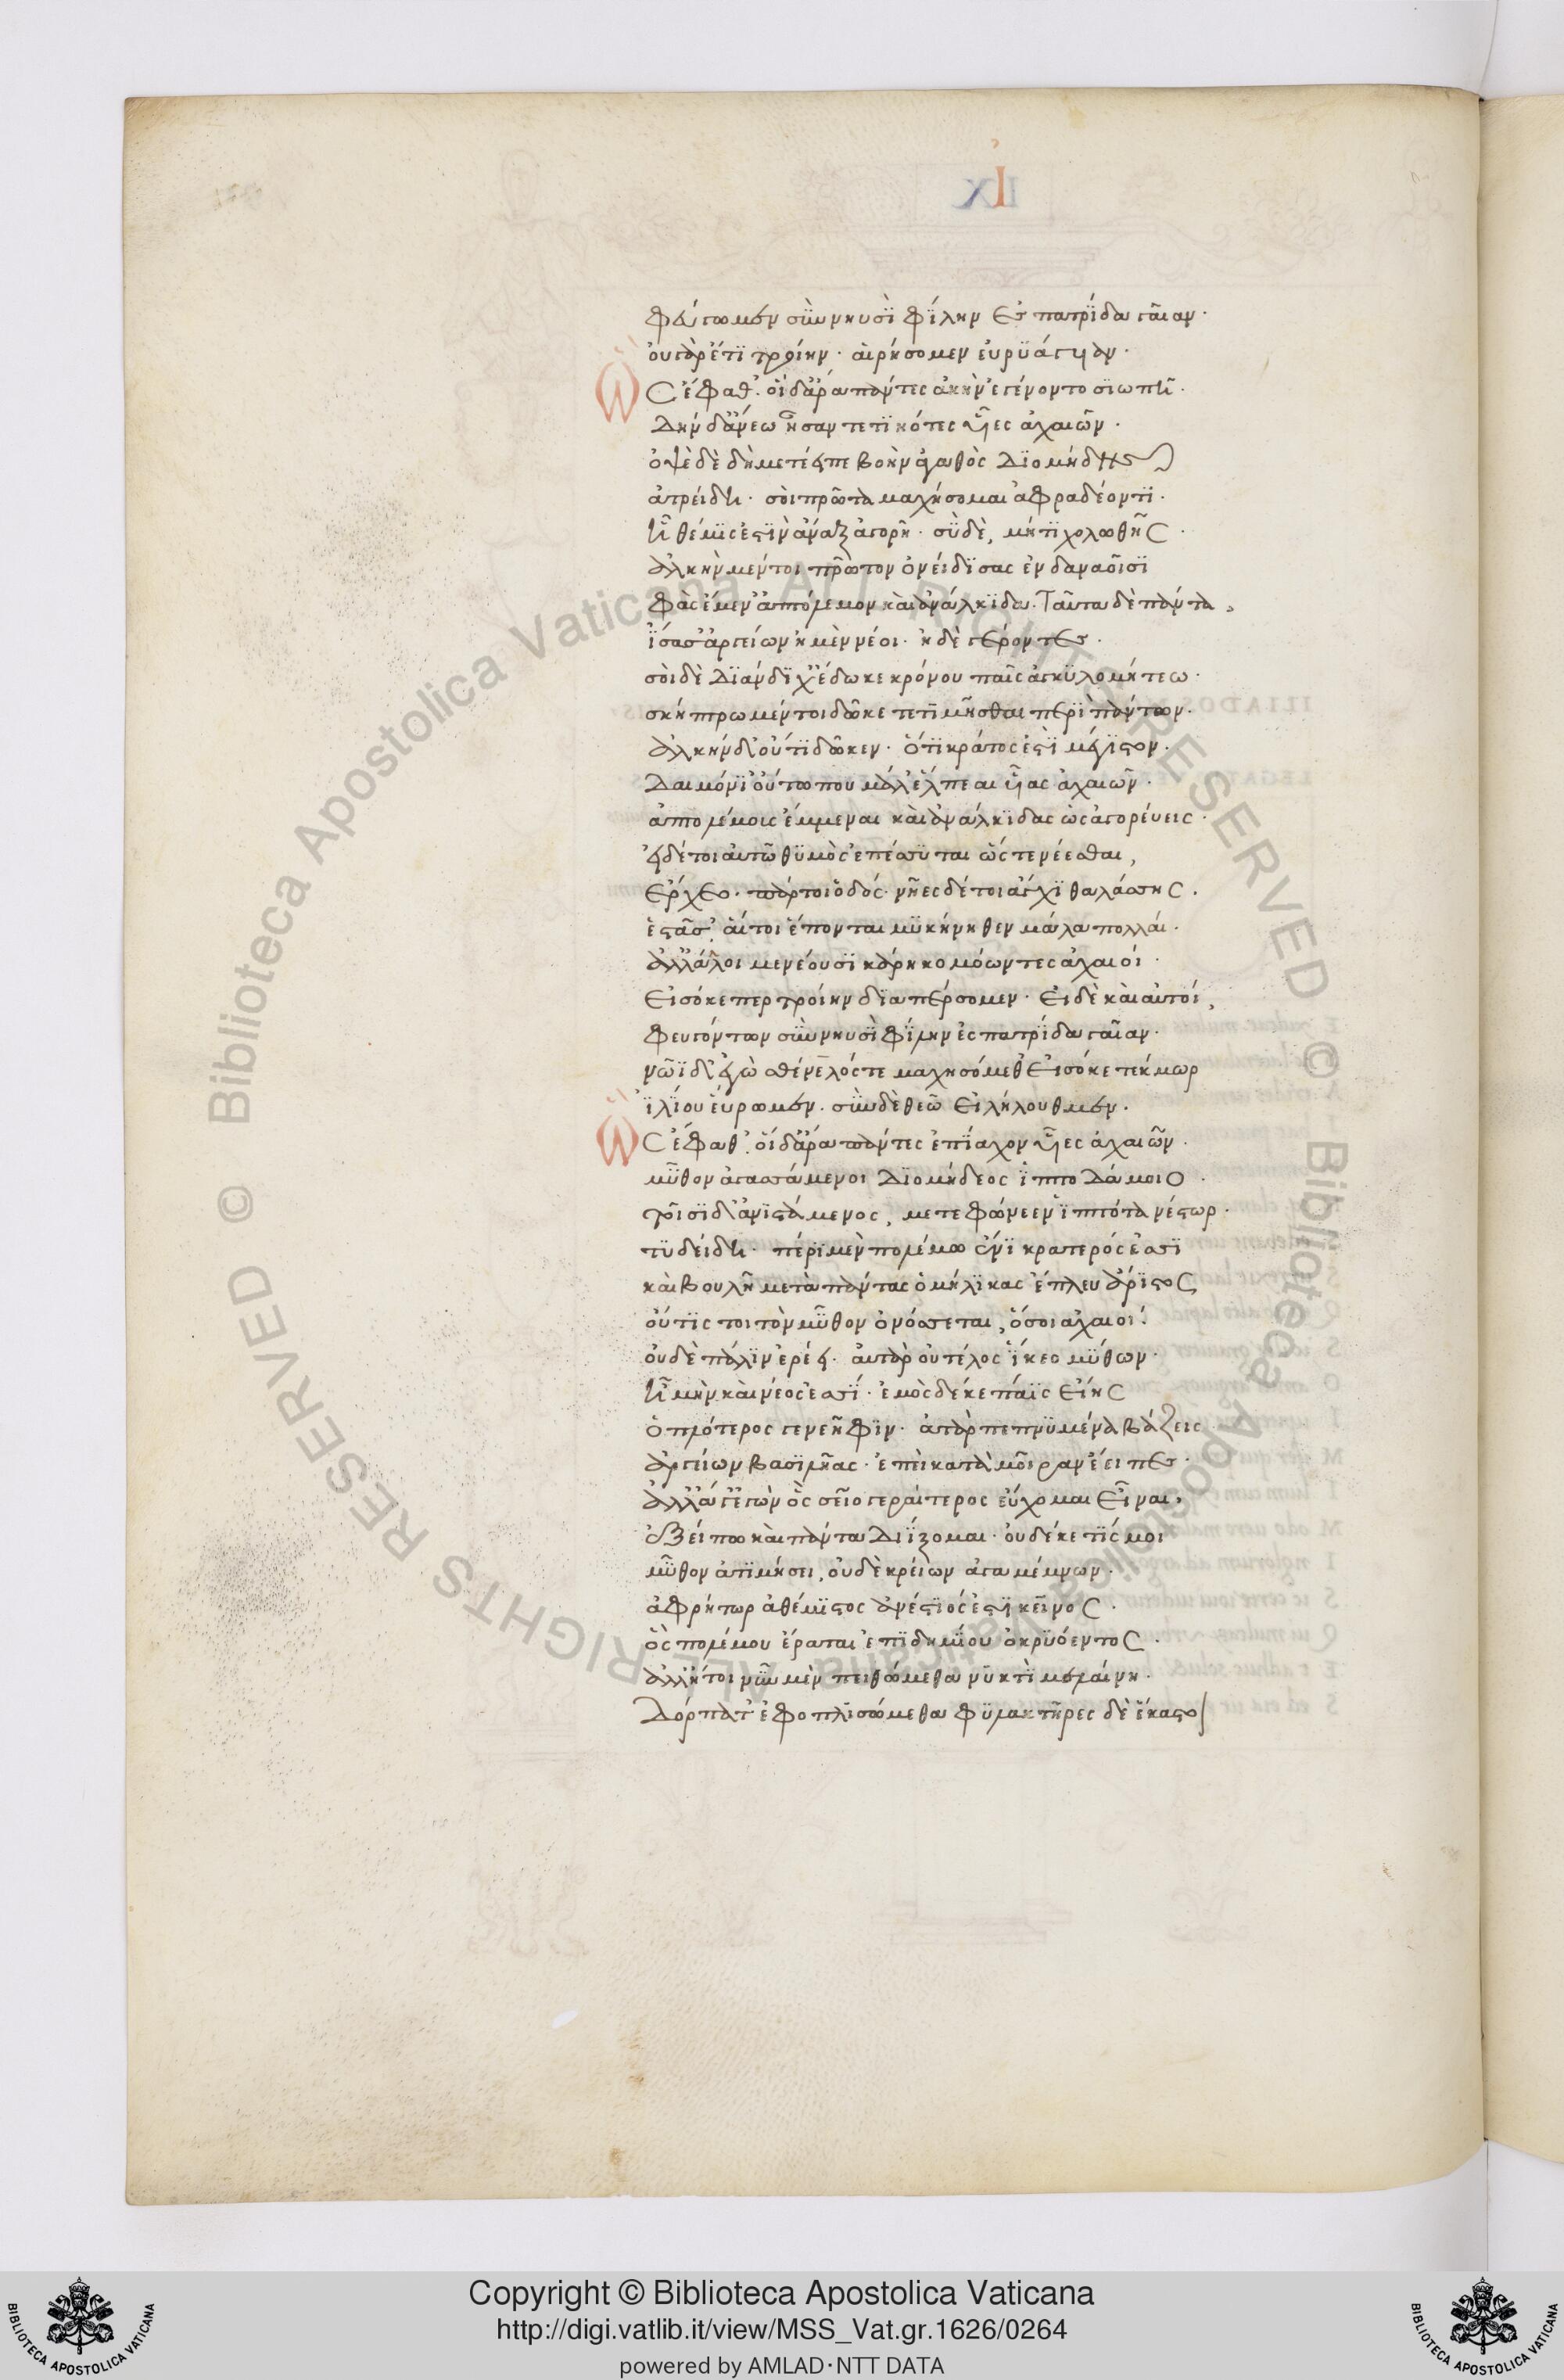 Ἰ
φεύγωμεν σὺν νηυσὶ φίλην ἐς πατρίδα γαῖαν·
οὐ γὰρ ἔτι τροίην· αἱρήσομεν εὐρυάγυιαν·
Ὣς ἔφαθ᾽. οἱ δ᾽ ἄρα πάντες ἀκὴν ἐγένοντο σιωπῆ·
Δὴν δ᾽ ἄνεω ἦσαν τετιηότες υἷες ἀχαιῶν·
ὀψὲ δὲ δὴ μετέειπε βοὴν ἀγαθὸς Διομήδης
ἀτρείδη· σοὶ πρῶτα μαχήσομαι ἀφραδέοντι·
ἣ θέμις ἐστὶν ἄναξ ἀγορῆ· σὺ δὲ, μήτι χολωθῆς·
ἀλκὴν μέν τοι πρῶτον ὀνείδισας ἐν δαναοῖσι
φὰς ἔμεν ἀπτόλεμον καὶ ἀνάλκιδα· Ταῦτα δὲ πάντα,
ἴσασ᾽ ἀργείων ἠμὲν νέοι· ἠδὲ γέροντες·
σοὶ δὲ Διάνδιχ᾽ ἔδωκε κρόνου παῖς ἀγκυλομήτεω·
σκήπτρω μέν τοι δῶκε τετιμῆσθαι περὶ πάντων·
ἀλκὴν δ᾽ οὔτι δῶκεν· ὅτι κράτος ἐστὶ μέγιστον·
Δαιμόνι᾽ οὕτω που μάλ᾽ ἔλπεαι υἷας ἀχαιῶν·
ἀπτολέμους ἔμμεναι καὶ ἀνάλκιδας ὡς ἀγορεύεις·
εἰ δέ τοι αὐτῶ θυμὸς ἐπέσσυται ὥς τε νέεσθαι,
Ἔρχεο· πάρ τοι ὁδός· νῆες δέ τοι ἄγχι θαλάσσης·
ἑστᾶσ᾽. αἵ τοι ἕποντο μυκήνηθεν μάλα πολλαί·
ἀλλ᾽ ἄλλοι μενέουσι κάρηκομόωντες ἀχαιοί·
Εἰσόκε περ τροίην διαπέρσομεν· Εἰ δὲ καὶ αὐτοί,
φευγόντων σὺν νηυσὶ φίλην ἐς πατρίδα γαῖαν·
νῶϊ δ᾽ ἐγὼ σθένελός τε μαχησόμεθ᾽ Εἰσόκε τέκμωρ
ἰλίου εὕρωμεν· σὺν δὲ θεῶ Εἰλήλουθμεν·
Ὣς ἔφαθ᾽. οἱ δ᾽ ἄρα πάντες ἐπίαχον υἷες ἀχαιῶν·
μῦθον ἀγασσάμενοι Διομήδεος ἱπποδάμοιο·
τοῖσι δ᾽ ἀνιστάμενος, μετεφώνεεν ἱππότα νέστωρ·
τυδείδη· πέρι μὲν πολέμω ἔνι κρατερός ἐσσι
καὶ βουλῆ μετὰ πάντας ὁμήλικας ἔπλευ ἄριστος
οὔτις τοι τὸν μῦθον ὀνόσσεται, ὅσοι ἀχαιοί·
οὐδὲ πάλιν ἐρέει· ἀτὰρ οὐ τέλος ἵκεο μύθων·
ἦ μὴν καὶ νέος ἐσσί· ἐμὸς δέ κε πάϊς εἴης
ὁπλότερος γενεῆφιν· ἀτὰρ πεπνυμένα βάζεις
ἀργείων βασιλῆας· ἐπεὶ κατὰ μοῖραν ἔειπες·
ἀλλ᾽ ἄγ᾽ ἐγὼν ὃς σεῖο γεραίτερος εὔχομαι Εἶναι,
ἐξείπω καὶ πάντα Διίξομαι· οὐδέ κε τίς μοι
μῦθον ἀτιμήσει, οὐδὲ κρείων ἀγαμέμνων·
ἀφρήτωρ ἀθέμιστος ἀνέστιός ἐστι κεῖνος·
ὃς πολέμου ἔραται ἐπιδημίου ὀκρυόεντος·
ἀλλ᾽ ἤτοι νῦν μὲν πειθώμεθα νυκτὶ μελαίνη·
Δόρπα τ᾽ ἐφοπλισώμεθα φυλακτῆρες δὲ ἕκαστοι
Copyright © Biblioteca Apostolica Vaticana
http://digi.vatlib.it/view/MSS_Vat.gr.1626/0264
powered by AMLAD·NTT DATA
© Biblioteca Apostolica Vaticana ALL RIGHTS RESERVED © Biblioteca Apostolica Vaticana ALL RIGHTS RESERVED
BIBLIOTECA APOSTOLICA VATICANA
BIBLIOTECA APOSTOLICA VATICANA